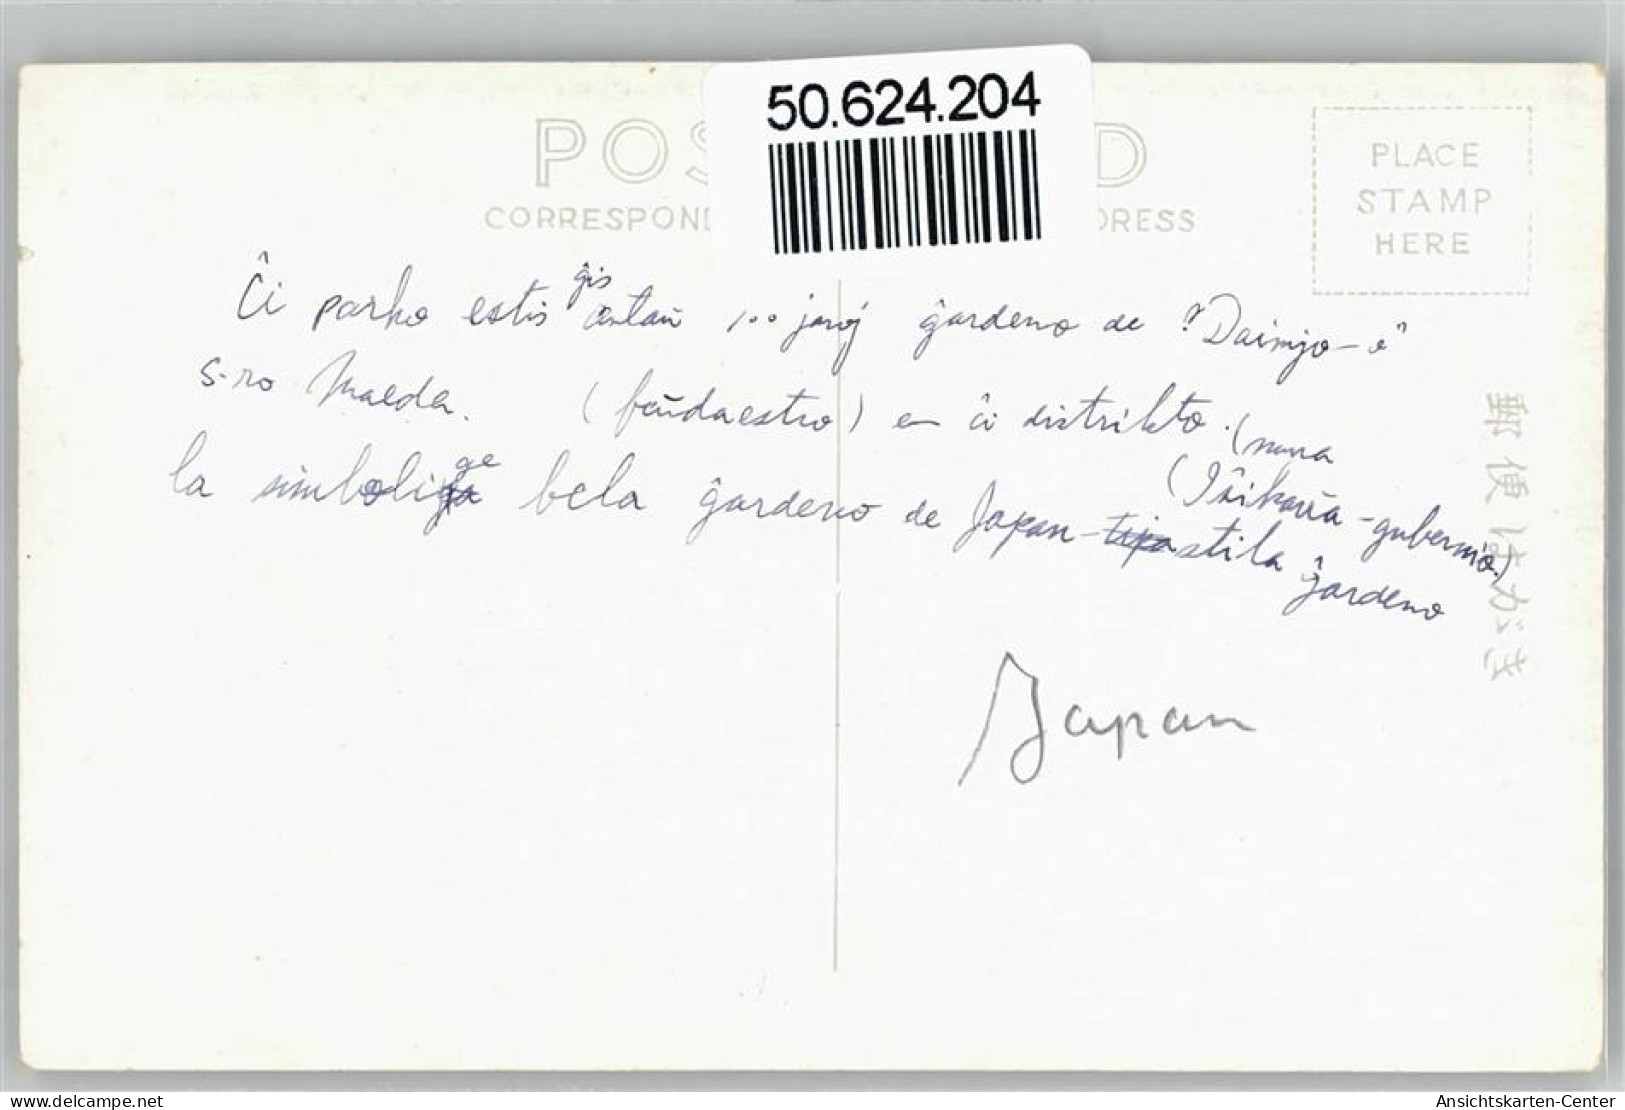 50.624.204
POS D
CORRESPOND DRESS
PLACE
STAMP
HERE
Ĉi parko estis ĝis antaŭ 100 jaroj ĝardeno de "Daimjo-o"
S-ro Maeda. (feŭdaestro) en ĉi distrikto. (nuna
(Iŝikaŭa-gubernio.)
la simbolige bela ĝardeno de Japan-stila ĝardeno
Japan
郵便はがき
delcampe.net
Ansichtskarten-Center